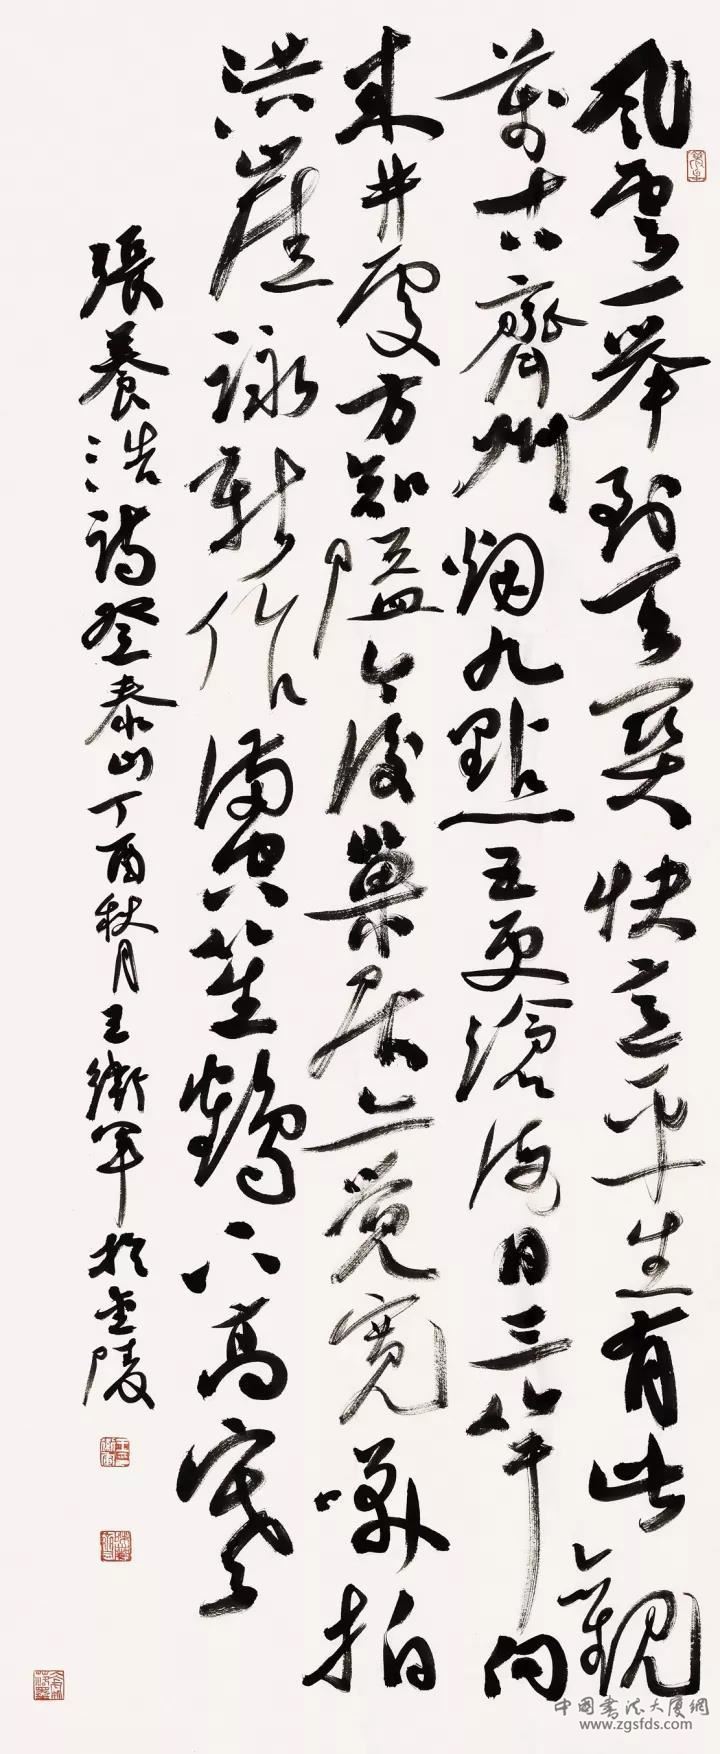 風雲一舉到天関快意平生有此觀
萬古齊州烟九點五更滄海日三竿向
来井處方知隘今後巢居亦覺寬咲拍
洪崖詠新作滿空笙鶴下高寒
張養浩詩登泰山丁酉秋月王衛軍於金陵
中國書法大廈網
www.zgsfds.com